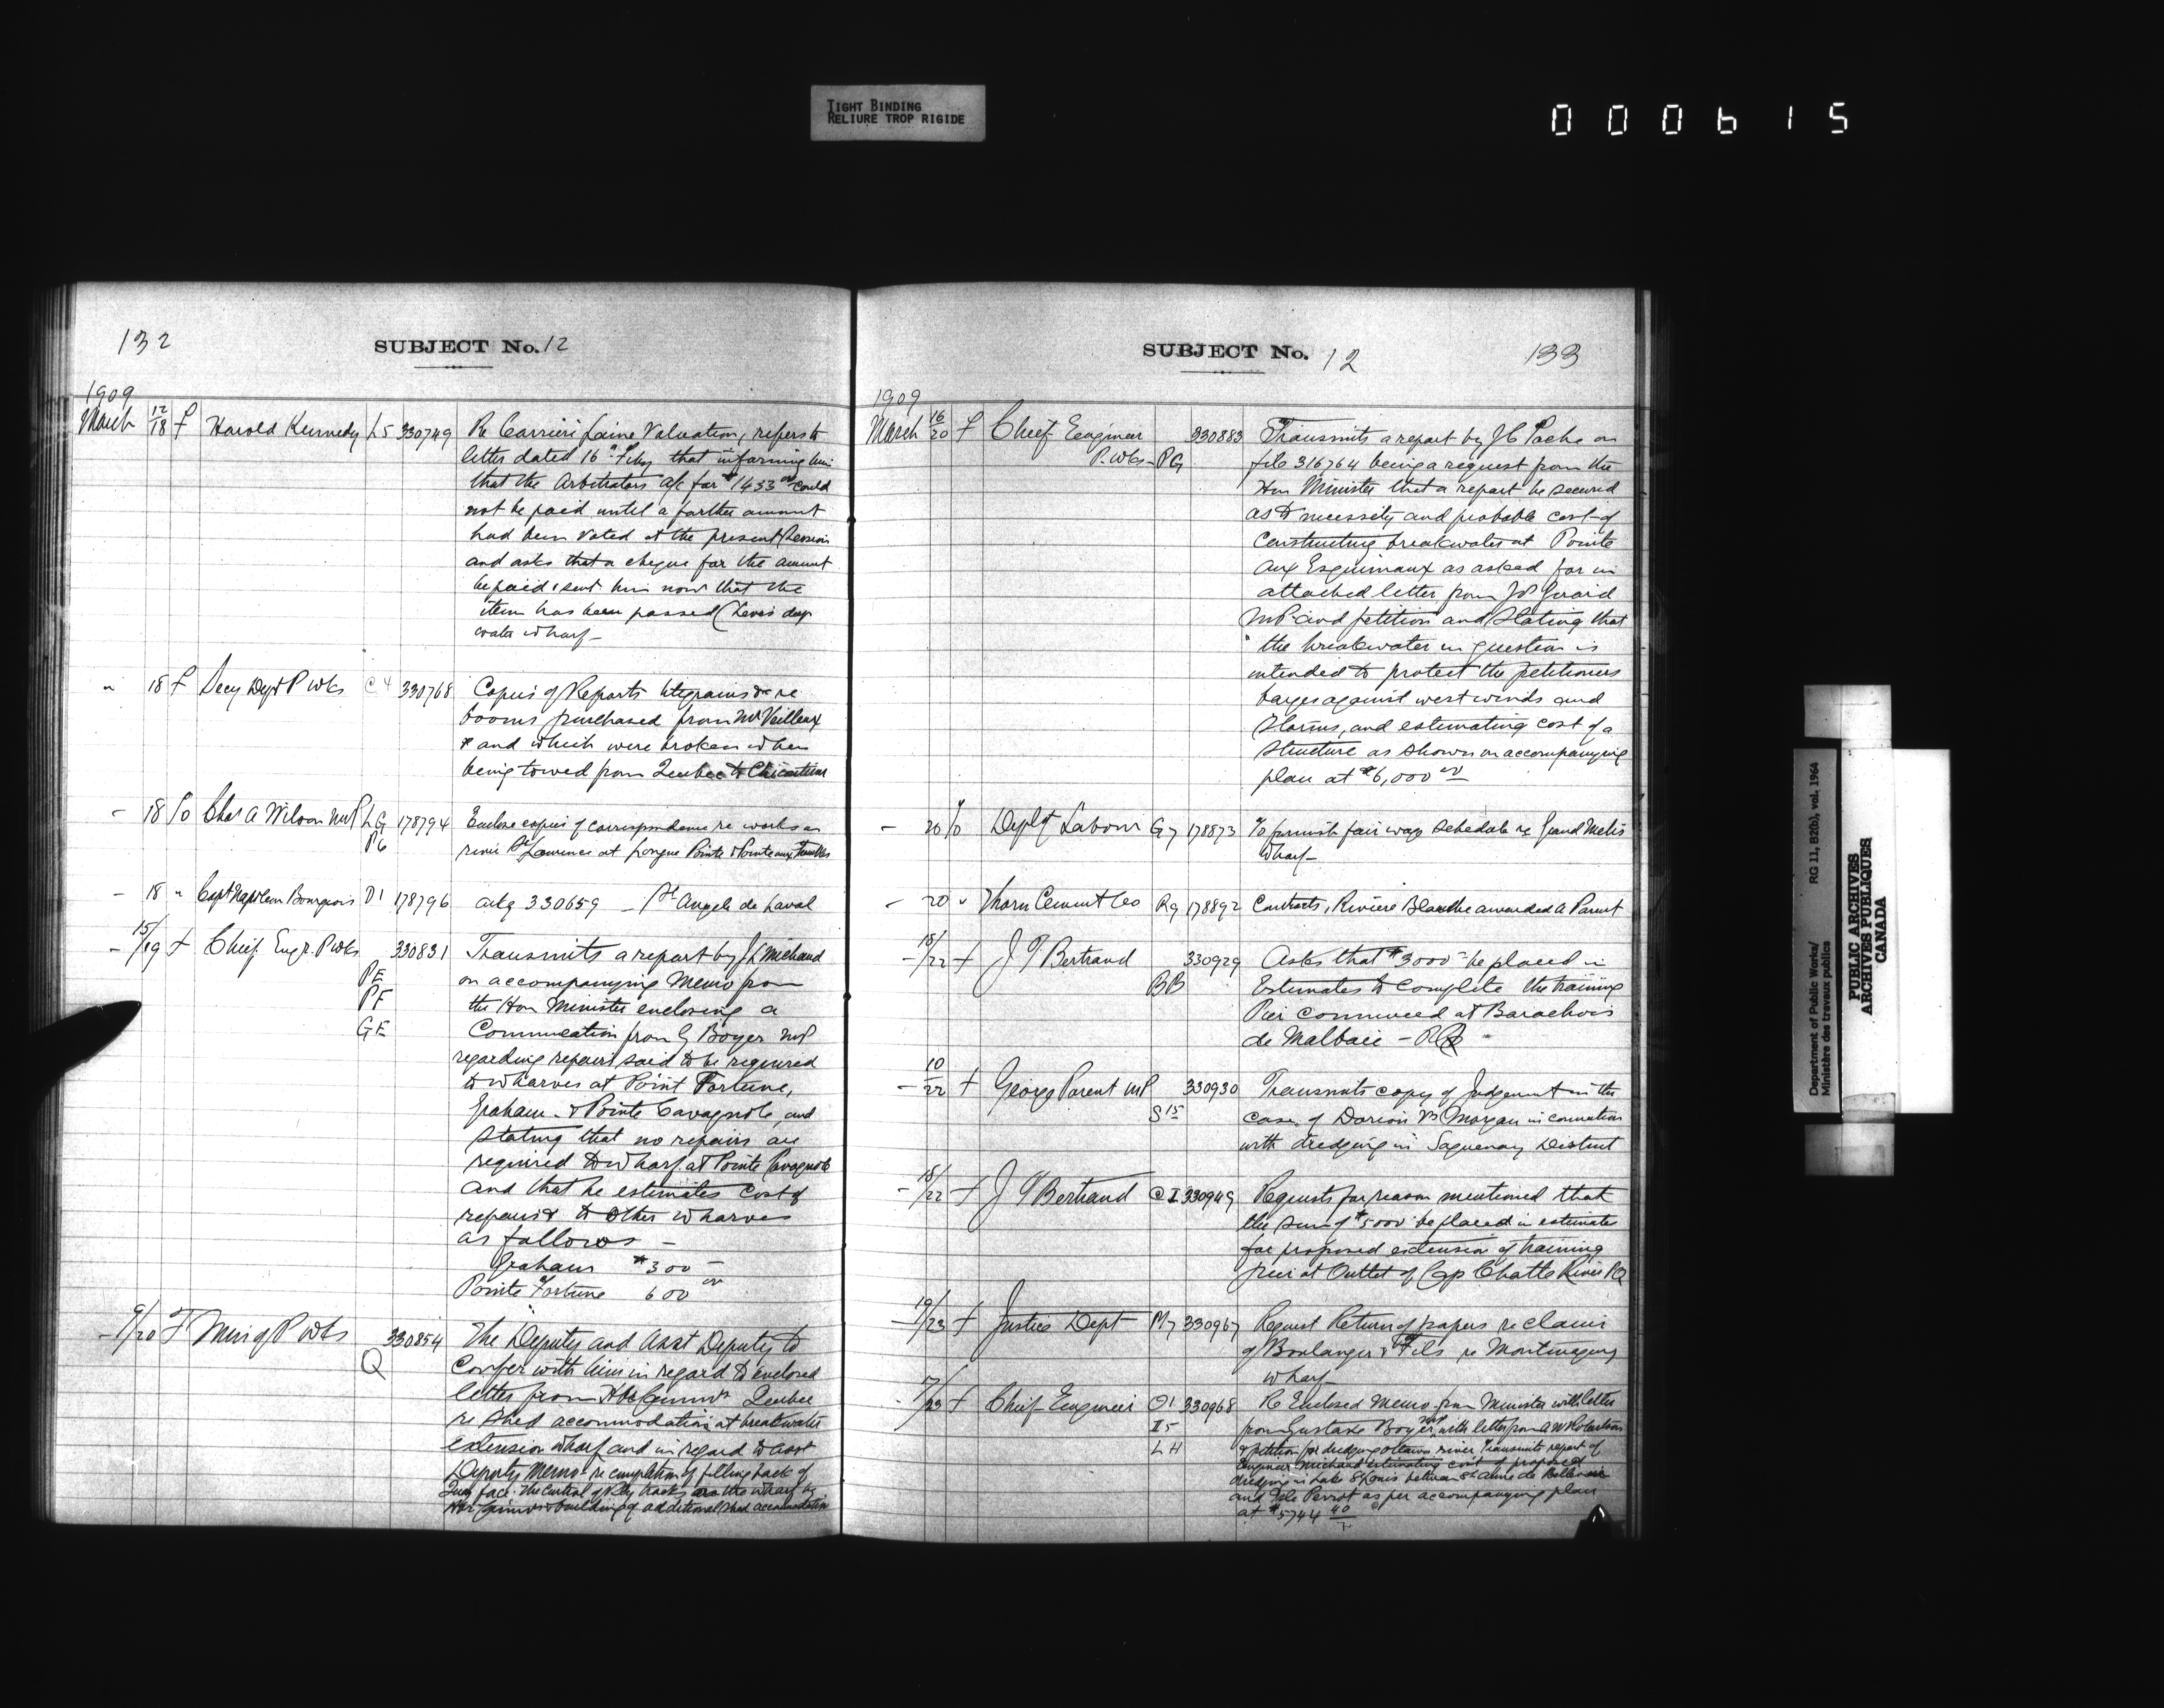 TIGHT BINDING
RELIURE TROP RIGIDE
000615
132
SUBJECT No. 12
1909
March 12/18 f Harold Kennedy L5 330749 Re Carrier Laine Valuation, refers to
letter dated 16th Feby that informing him
that the Arbitrators a/c for $1433.00 could
not be paid until a further amount
had been voted at the present Session
and asks that a cheque for the amount
be paid & sent him now that the
item has been passed (Levis deep
water wharf-
" 18 f Secy Dept P Wks C4 330768 Copies of Reports telegrams &c re
booms purchased from Mr Veilleux
& and which were broken when
being towed from Quebec to Chicoutimi
- 18 f/o Chas A Wilson MP LG 178794 Enclose copies of correspondence re works on
PG river St Lawrence at Longue Pointe & Pointe aux Trembles
- 18 " Capt Napoleon Bourgeois D1 178796 ackg 330659 - St Angele de Laval
- 15/19 f Chief Engr. P Wks 330831 Transmits a report by J L Michaud
PE on accompanying Memo from
PF the Hon Minister enclosing a
GE Communcation from G Boyer MP
regarding repairs said to be required
to wharves at Point Fortune,
Graham & Pointe Cavagnole, and
stating that no repairs are
required to wharf at Pointe Cavagnole
and that he estimates cost of
repairs to other wharves
as follows -
Graham $300 -
Pointe Fortune 600 00
- 9/20 f Min of P Wks 330854 The Deputy and Asst Deputy to
Q Confer with him in regard to enclosed
letter from Hbr Commrs Quebec
re shed accommodation at breakwater
extension wharf and in regard to Asst
Deputy Memo re completion of filling back of
Quay face. The Control of Rly tracks on the wharf by
Hbr Commrs & building of additional shed accomodation
SUBJECT No. 12
133
1909
March 16/20 f Chief Engineer 330883 Transmits a report by J C Pache on
P. Wks- PG file 316764 being a request from the
Hon Minister that a report be secured
as to necessity and probable cost of
constructing breakwater at Pointe
aux Esquimaux as asked for in
attached letter from J Girard
MP and petition and stating that
" the breakwater in question is
intended to protect the petitioners
barges against west winds and
storms, and estimating cost of a
structure as shown on accompanying
plan at $6,000 00
- 20 f/o Dept of Labour G7 178873 To furnish fair wage schedule re Grand Metis
Wharf-
- 20 " Thorn Cement Co R9 178892 Contracts, Riviere Blanche awarded A Parent
- 18/22 f J T Bertrand 330929 Asks that $3000 - be placed in
BB Estimates to complete the training
Pier commenced at Barachois
de Malbaie - PQ
- 10/22 f George Parent MP 330930 Transmits copy of Judgement in the
S15 case of Dorion vs Morgan in connection
with dredging in Saguenay District
- 18/22 f J T Bertrand CI 330949 Requests for reason mentioned that
the sum of $5000 be placed in estimates
for proposed extension of training
pier at Outlet of Cap Chatte River PQ
- 19/23 f Justice Dept M7 330967 Request Return of papers re claim
of Boulanger & Fils re Montmagny
wharf-
17/23 f Chief Engineer O1 330968 Re Enclosed Memo from Minister with letter
I5 from Gustave Boyer MP with letter from A W Robertson
LH & petition for dredging Ottawa river Transmits report of
Engineer Michaud estimating cost of proposed
dredging in Lake St Louis between St Anne de Bellevue
and Isle Perrot as per accompanying plan
at $5744 40
Department of Public Works/ RG 11, B2(b), vol. 1964
Ministère des travaux publics
PUBLIC ARCHIVES
ARCHIVES PUBLIQUES
CANADA